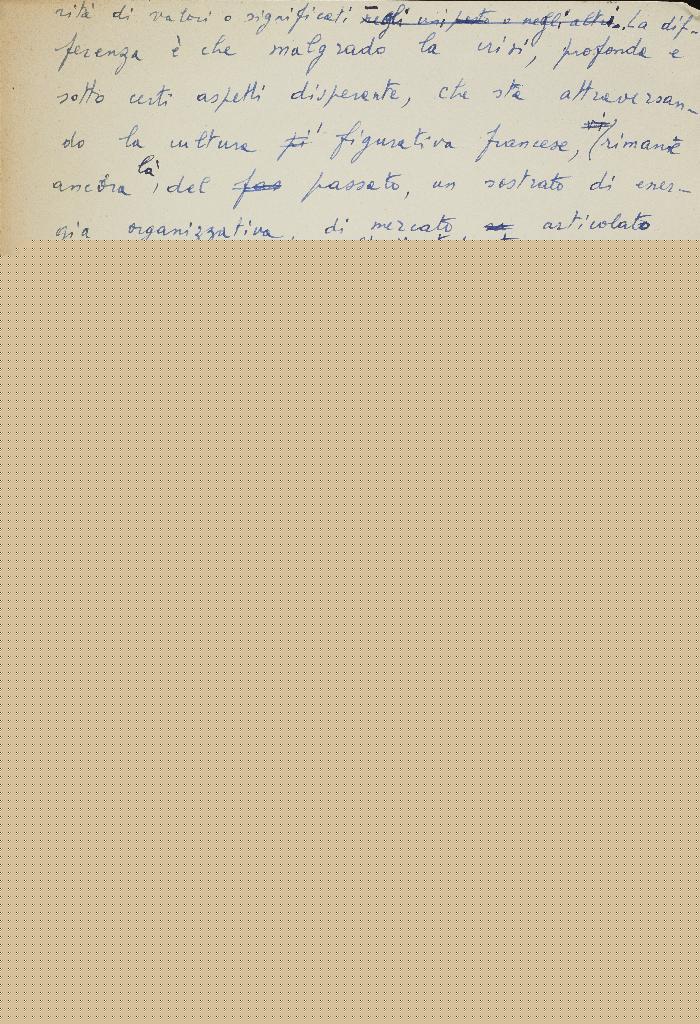 rità di valori o significati negli uni o negli altri. La dif-
ferenza è che malgrado la crisi, profonda e
sotto certi aspetti disperante, che sta attraversan-
do la cultura pi figurativa francese, rimane
ancora là, del passato, un sostrato di ener-
gia organizzativa, di mercato, articolato